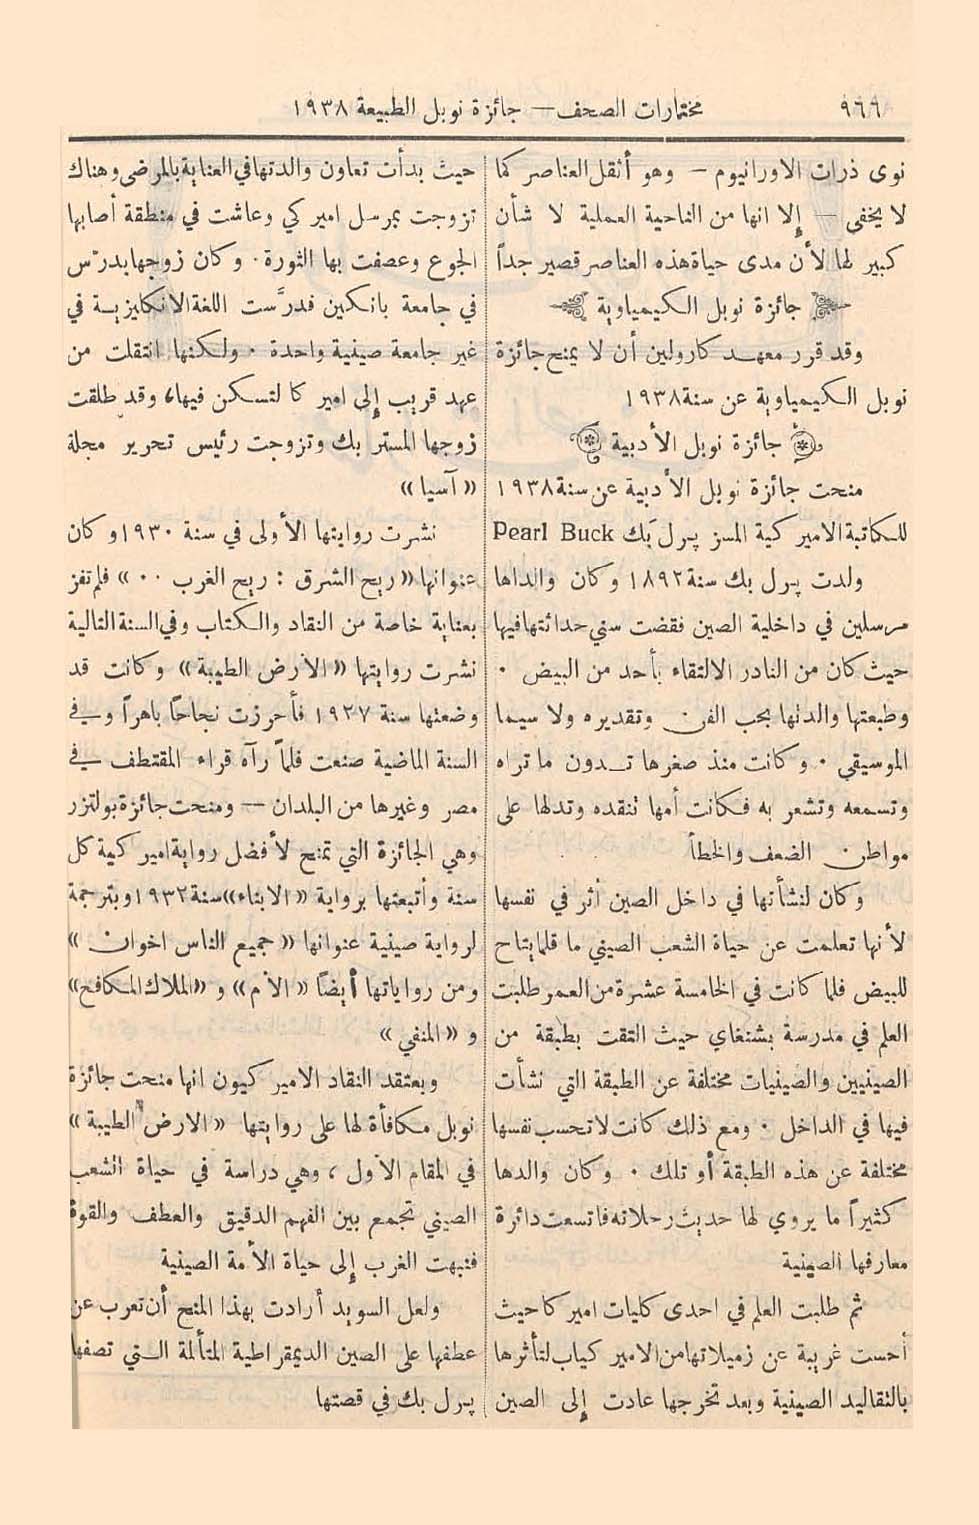 ٩٦٦
مختارات الصحف — جائزة نوبل الطبيعة ١٩٣٨
نوى ذرات الاورانيوم — وهو أثقل العناصر كما
لا يخفى — إلا انها من الناحية العملية لا شأن
كبير لها لأن مدى حياة هذه العناصر قصير جداً
جائزة نوبل الكيمياوية
وقد قرر معهد كارولين أن لا يمنح جائزة
نوبل الكيمياوية عن سنة ١٩٣٨
جائزة نوبل الأدبية
منحت جائزة نوبل الأدبية عن سنة ١٩٣٨
للكاتبة الاميركية المسز پرل بَك Pearl Buck
ولدت پرل بك سنة ١٨٩٢ وكان والداها
مرسلين في داخلية الصين فقضت سني حداثتها فيها
حيث كان من النادر الالتقاء بأحد من البيض .
وطبعتها والدتها بحب الفن وتقديره ولا سيما
الموسيقى . وكانت منذ صغرها تدون ما تراه
وتسمعه وتشعر به فكانت أمها تنقده وتدلها على
مواطن الضعف والخطأ
وكان لنشأتها في داخل الصين أثر في نفسها
لأنها تعلمت عن حياة الشعب الصيني ما قلما يتاح
للبيض فلما كانت في الخامسة عشرة من العمر طلبت
العلم في مدرسة بشنغاي حيث التقت بطبقة من
الصينيين والصينيات مختلفة عن الطبقة التي نشأت
فيها في الداخل . ومع ذلك كانت لا تحسب نفسها
مختلفة عن هذه الطبقة أو تلك . وكان والدها
كثيراً ما يروي لها حديث رحلاته فاتسعت دائرة
معارفها الصينية
ثم طلبت العلم في احدى كليات اميركا حيث
أحست غريبة عن زميلاتها من الاميركيات لتأثرها
بالتقاليد الصينية وبعد تخرجها عادت إلى الصين
حيث بدأت تعاون والدتها في العناية بالمرضى وهناك
تزوجت بمرسل اميركي وعاشت في منطقة أصابها
الجوع وعصفت بها الثورة . وكان زوجها يدرّس
في جامعة بانكين فدرَّست اللغة الانكليزية في
غير جامعة صينية واحدة . ولكنها انتقلت من
عهد قريب إلى اميركا لتسكن فيها، وقد طلقت
زوجها المستر بك وتزوجت رئيس تحرير مجلة
« آسيا »
نشرت روايتها الأولى في سنة ١٩٣٠ وكان
عنوانها « ريح الشرق : ريح الغرب .. » فلم تفز
بعناية خاصة من النقاد والكتاب وفي السنة التالية
نشرت روايتها « الأرض الطيبة » وكانت قد
وضعتها سنة ١٩٢٧ فأحرزت نجاحاً باهراً وفي
السنة الماضية صنعت فلماً رآه قراء المقتطف في
مصر وغيرها من البلدان — ومنحت جائزة بولتزر
وهي الجائزة التي تمنح لأفضل رواية اميركية كل
سنة وأتبعتها برواية « الابناء » سنة ١٩٣٢ وبترجمة
لرواية صينية عنوانها « جميع الناس اخوان »
ومن رواياتها أيضاً « الأم » و « الملاك المكافح »
و « المنفي »
ويعتقد النقاد الاميركيون انها منحت جائزة
نوبل مكافأة لها على روايتها « الارض الطيبة »
في المقام الأول ، وهي دراسة في حياة الشعب
الصيني تجمع بين الفهم الدقيق والعطف والقوة
فتبهت الغرب إلى حياة الأمة الصينية
ولعل السويد أرادت بهذا المنح أن تعرب عن
عطفها على الصين الديمقراطية المتألمة التي تصفها
پرل بك في قصتها